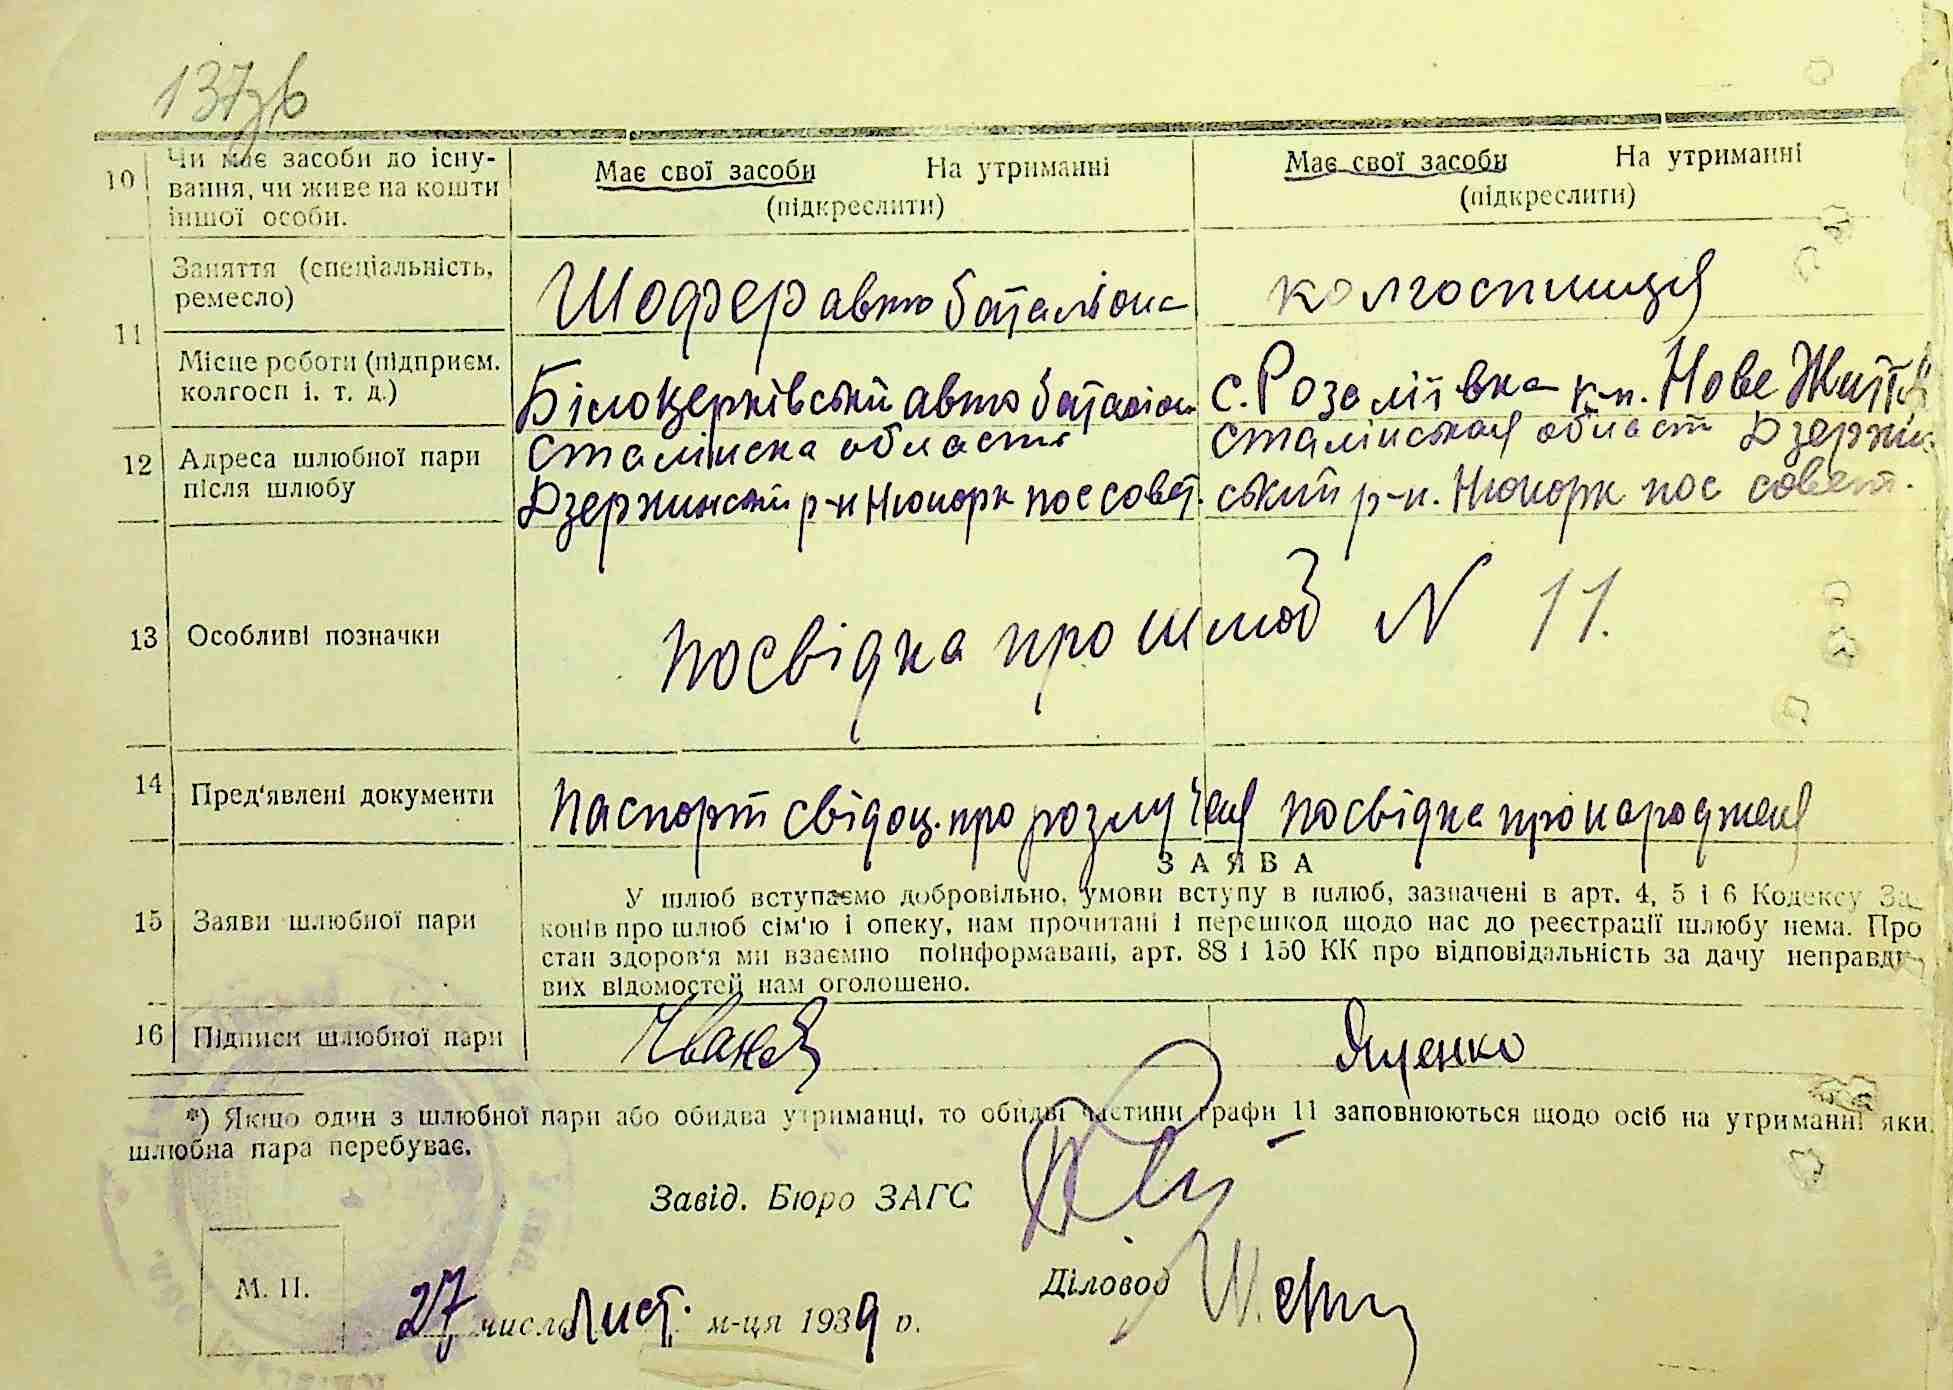 137зв
10 Чи має засоби до існу-
вання, чи живе на кошти
іншої особи.
Має свої засоби На утриманні
(підкреслити)
Має свої засоби На утриманні
(підкреслити)
11 Заняття (спеціальність,
ремесло)
Шофер автобаталіона
колгоспниця
Місце роботи (підприєм.
колгосп і. т. д.)
Білоцерківський автобаталіон
с. Розаліївка к-п. Нове Життя
12 Адреса шлюбної пари
після шлюбу
Сталінска область
Дзержинський р-н Нюйорк пос совет.
Сталінськая област Дзержин
ський р-н. Нюйорк пос совет.
13 Особливі позначки
Посвідка про шлюб N 11.
14 Пред'явлені документи
Паспорт свідоц. про розлучення
посвідка про народження
ЗАЯВА
15 Заяви шлюбної пари
У шлюб вступаємо добровільно, умови вступу в шлюб, зазначені в арт. 4, 5 і 6 Кодексу За-
конів про шлюб сім'ю і опеку, нам прочитані і перешкод щодо нас до реєстрації шлюбу нема. Про
стан здоров'я ми взаємно поінформавані, арт. 88 і 150 КК про відповідальність за дачу неправди-
вих відомостей нам оголошено.
16 Підписи шлюбної пари
Яценко
*) Якщо один з шлюбної пари або обидва утриманці, то обидві частини графи 11 заповнюються щодо осіб на утриманні яки
шлюбна пара перебуває.
Завід. Бюро ЗАГС
Діловод
М. П.
27 число Лист. м-ця 1939 р.